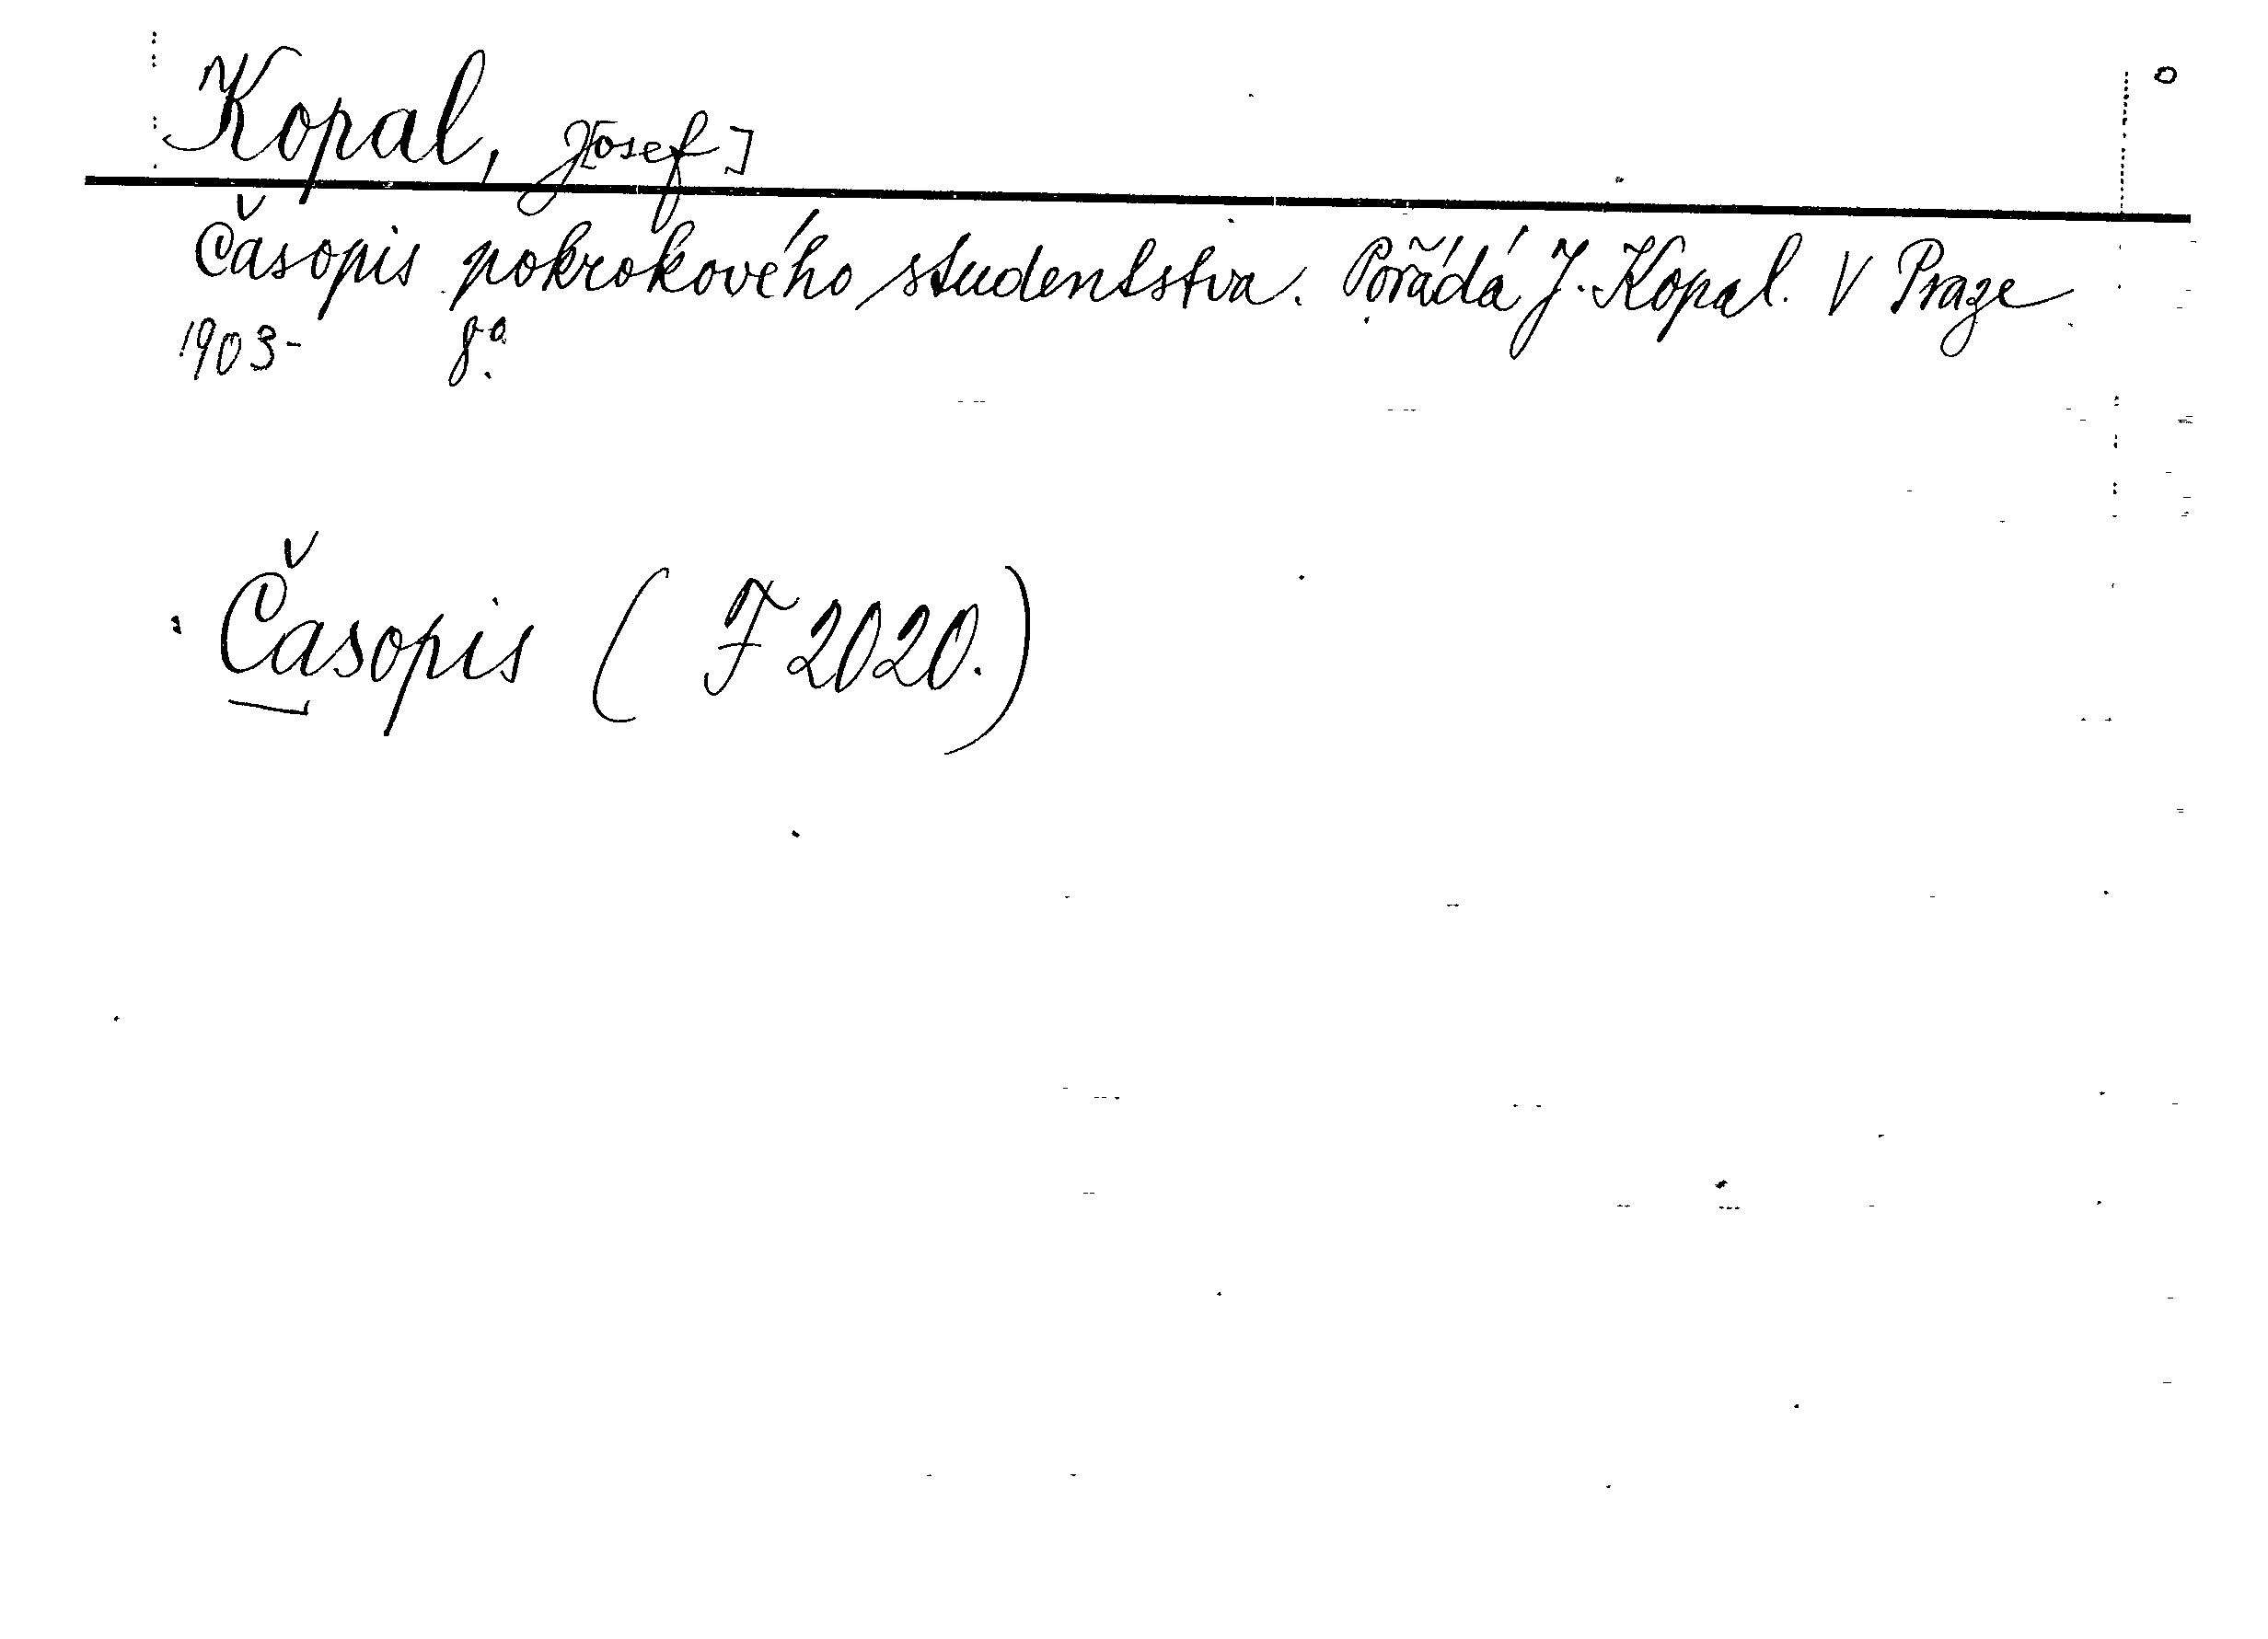 Kopal, J[osef]
Časopis pokrokového studentstva. Pořádá J. Kopal. V Praze
1903- 8°.
Časopis ( F 2020.)